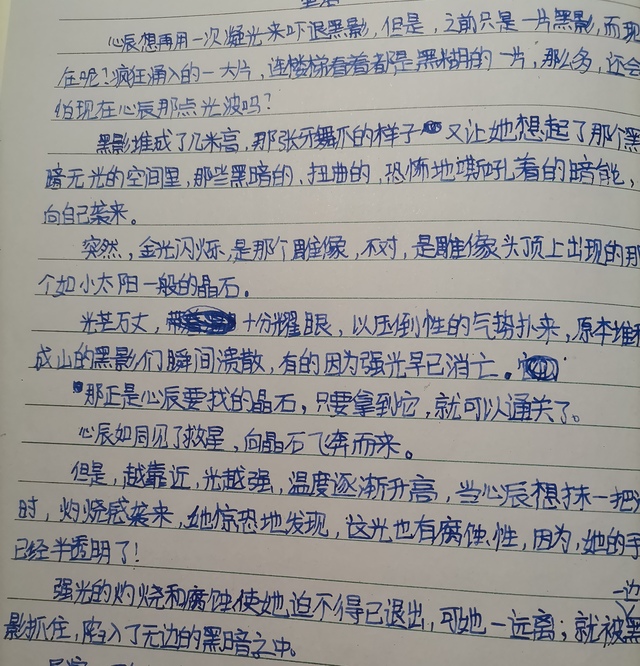 心辰想再用一次凝光来吓退黑影,但是,之前只是一片黑影,而现
在呢?疯狂涌入的一大片,连楼梯看着都是黑糊的一片,那么多,还会
怕现在心辰那点光波吗?
黑影堆成了几米高,那张牙舞爪的样子又让她想起了那个黑
暗无光的空间里,那些黑暗的、扭曲的,恐怖地嘶吼着的暗能,
向自己袭来。
突然,金光闪烁,是那个雕像,不对,是雕像头顶上出现的那
个如小太阳一般的晶石。
光芒万丈,十分耀眼,以压倒性的气势扑来,原本堆积
成山的黑影们瞬间溃散,有的因为强光早已消亡。
那正是心辰要找的晶石,只要拿到它,就可以通关了。
心辰如同见了救星,向晶石飞奔而来。
但是,越靠近,光越强,温度逐渐升高,当心辰想抹一把
时,灼烧感袭来,她惊恐地发现,这光也有腐蚀性,因为,她的手
已经半透明了!
强光的灼烧和腐蚀使她迫不得已退出,可她一远离;就被一边黑
影抓住,陷入了无边的黑暗之中。